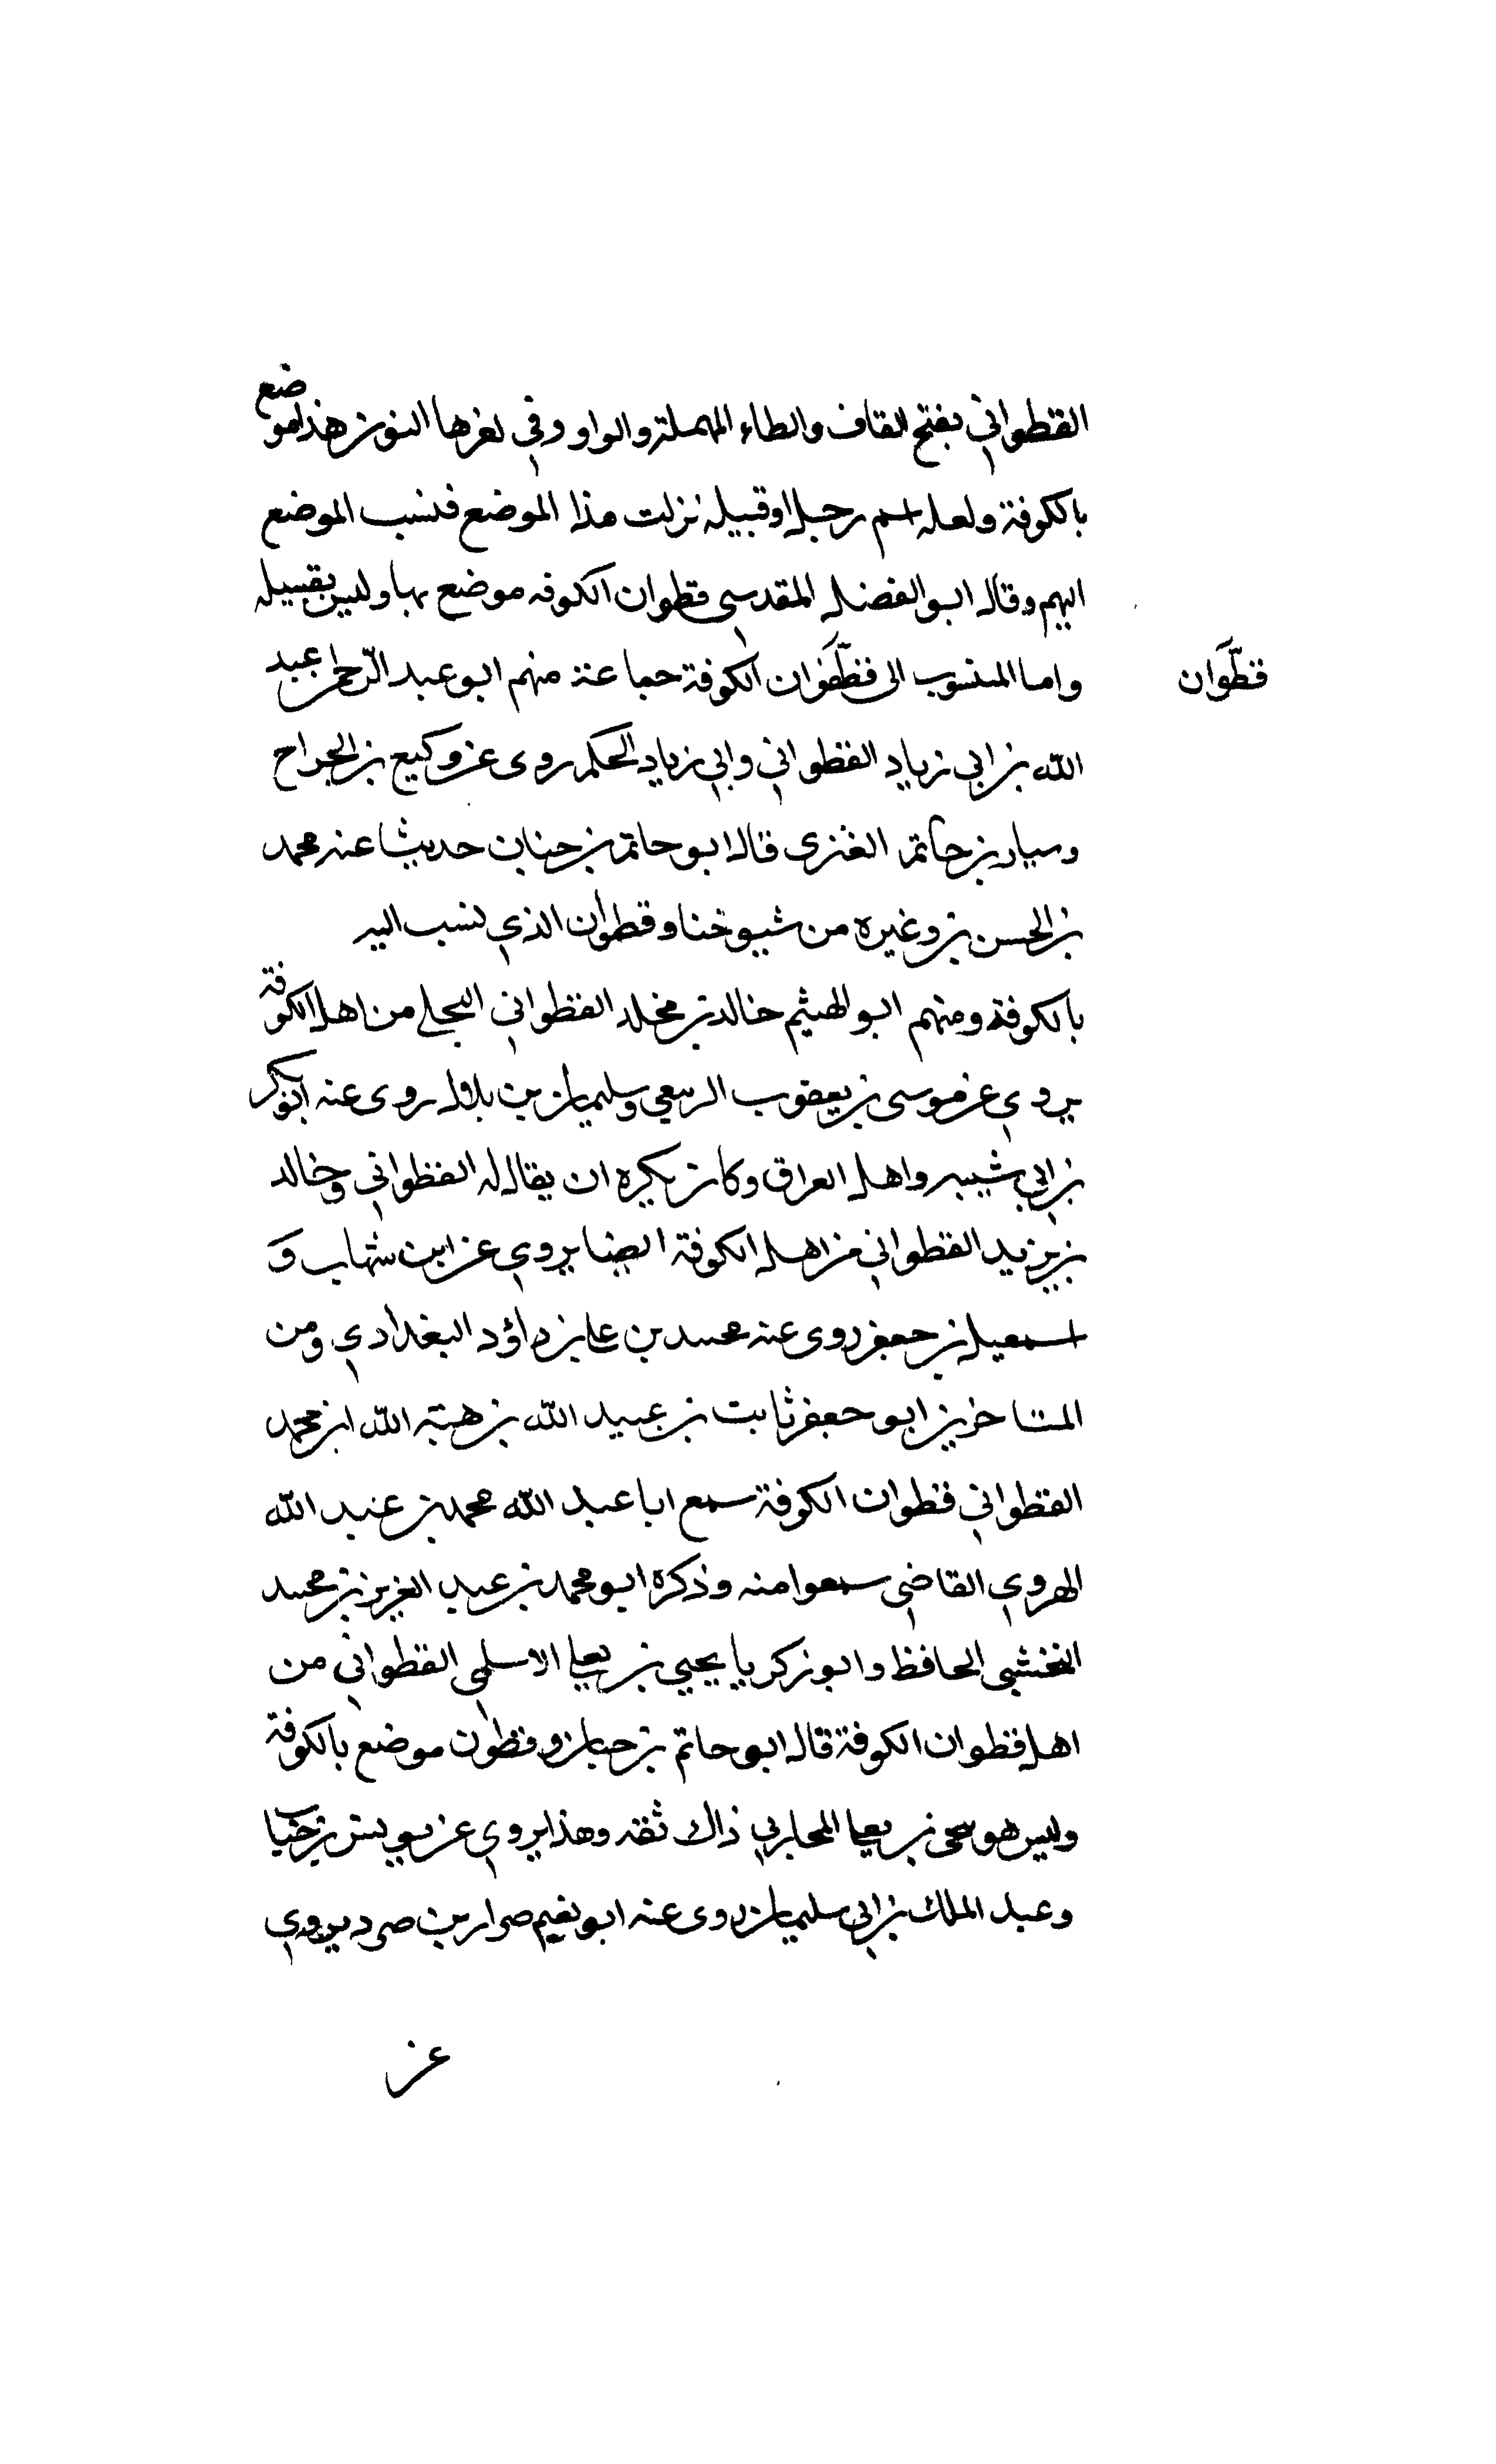 القطواني بفتح القاف والطاء المهملة والواو وفي اخرها النون هذا موضع
بالكوفة ولعله اسم رجل او قبيله نزلت هذا الموضع فنسب الموضع
اليهم وقال ابو الفضل المقدسي قطوان الكوفه موضع بها وليس بقبيله
قطّوَان
واما المنسوب الى قطَوان الكوفة جماعة منهم ابو عبد الرّحمن عبد
الله بن ابي زياد القطواني وابي زياد الحكم روى عن وكيع بن الجراح
وسيار بن حاتم العنزى قال ابو حاتم بن حبان حديثا عنه محمد
بن الحسن بن وغيره من شيوخنا وقطوان الذي نسب اليه
بالكوفة ومنهم ابو الهيثم خالد بن مخلد القطواني البجلي من اهل الكوفة
يروي عن موسى بن يعقوب الربعي وسليمان بن بلال روى عنه ابو بكر
بن ابي شيبه واهل العراق وكان يكره ان يقال له القطواني وخالد
بن يزيد القطواني من اهل الكوفة ايضا يروي عن ابن شهاب وَ
اسمعيل بن جعفر روى عنه محمد بن علي بن داؤد البغدادي ومن
المتاخرين ابو جعفر ثابت بن عبيد الله بن هبة الله ابن محمد
القطواني قطوان الكوفة سمع ابا عبد الله محمد بن عبد الله
الهروي القاضي سمعوا منه وذكره ابو محمد بن عبد العزيز بن محمد
النخشبي الحافظ وابو زكريا يحيي بن يعلى الاسلمي القطواني من
اهل قطوان الكوفة قال ابو حاتم بن حبان وقطوان موضع بالكوفة
وليس هو يحيى بن يعلى المحاربي ذاك ثقه وهذا يروي عن يونس بن خباب
وعبد الملك بن ابي سليمان روى عنه ابو نعيم ضرار بن صرد يروي
عن